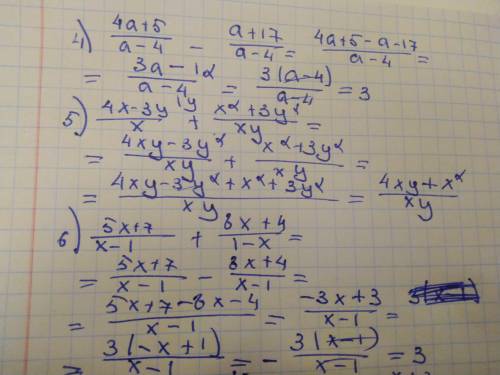 4) (4a+5)/(a-4) - (a+17)/(a-4) = (4a+5-a-17)/(a-4) =
= (3a-12)/(a-4) = (3(a-4))/(a-4) = 3
5) (4x-3y)/x |y + (x²+3y²)/(xy) =
= (4xy-3y²)/(xy) + (x²+3y²)/(xy) =
= (4xy-3y²+x²+3y²)/(xy) = (4xy+x²)/(xy)
6) (5x+7)/(x-1) + (8x+4)/(1-x) =
= (5x+7)/(x-1) - (8x+4)/(x-1) =
= (5x+7-8x-4)/(x-1) = (-3x+3)/(x-1) =
= (3(-x+1))/(x-1) = - (3(x-1))/(x-1) = 3